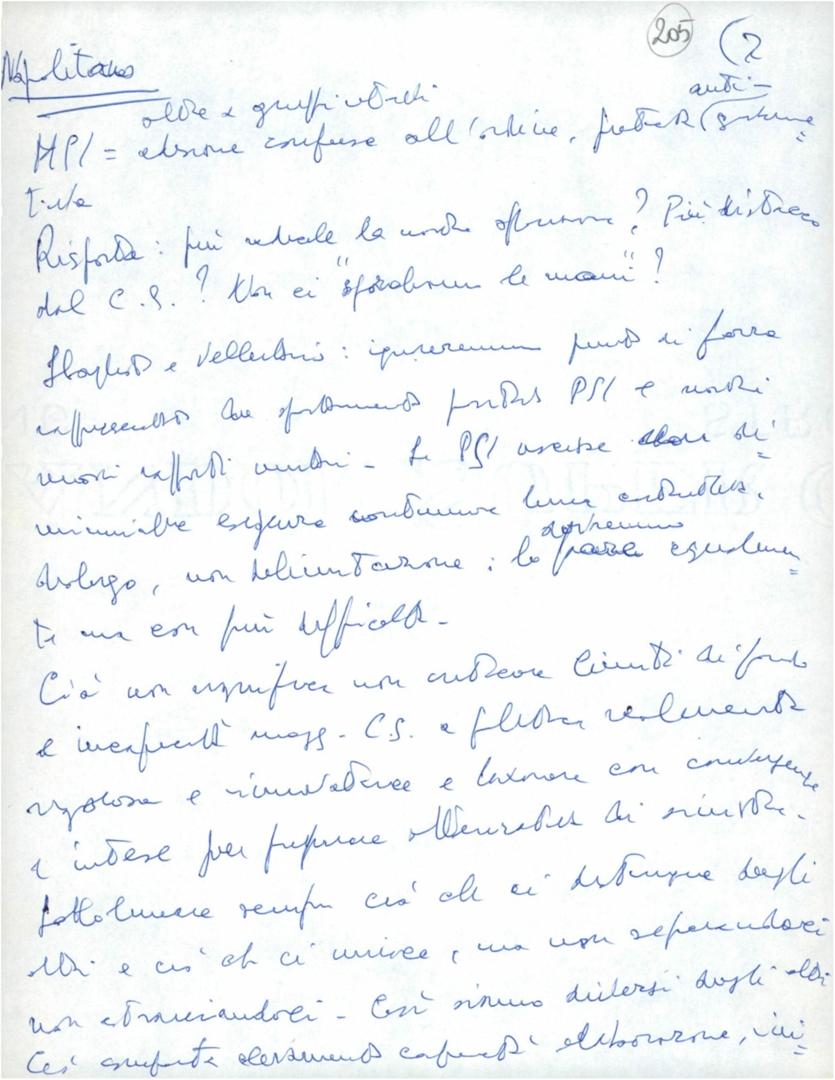 205 (2
Napolitano
oltre a gruppi
anti-
MPL = adesione confusa all'ordine, protesta (sistema=
tiva
Risposta: più radicale la nostra opposizione? Più distacco
dal C.S.? Non ci "sporchiamo le mani"?
Sbagliato e velleitario: ignoreremmo punto di forza
rappresentato da spostamento PSI e nostri
nuovi rapporti unitari - Se PSI uscisse di=
minuirebbe esigenza continuare linea
dovremmo
dialogo, non delimitazione: lo fare egualmen=
te ma con più difficoltà -
Ciò non significa non criticare limiti di fondo
e incapacità magg. C.S. a politica realmente
rigorosa e rinnovatrice e lavorare con convergenze
e intese per preparare alternativa di sinistra.
Sottolineare sempre ciò che ci distingue dagli
altri e ciò che ci unisce, ma non separandoci
non estraniandoci - Così siamo diversi dagli altri
Ciò comporta elevamento capacità elaborazione, ini=